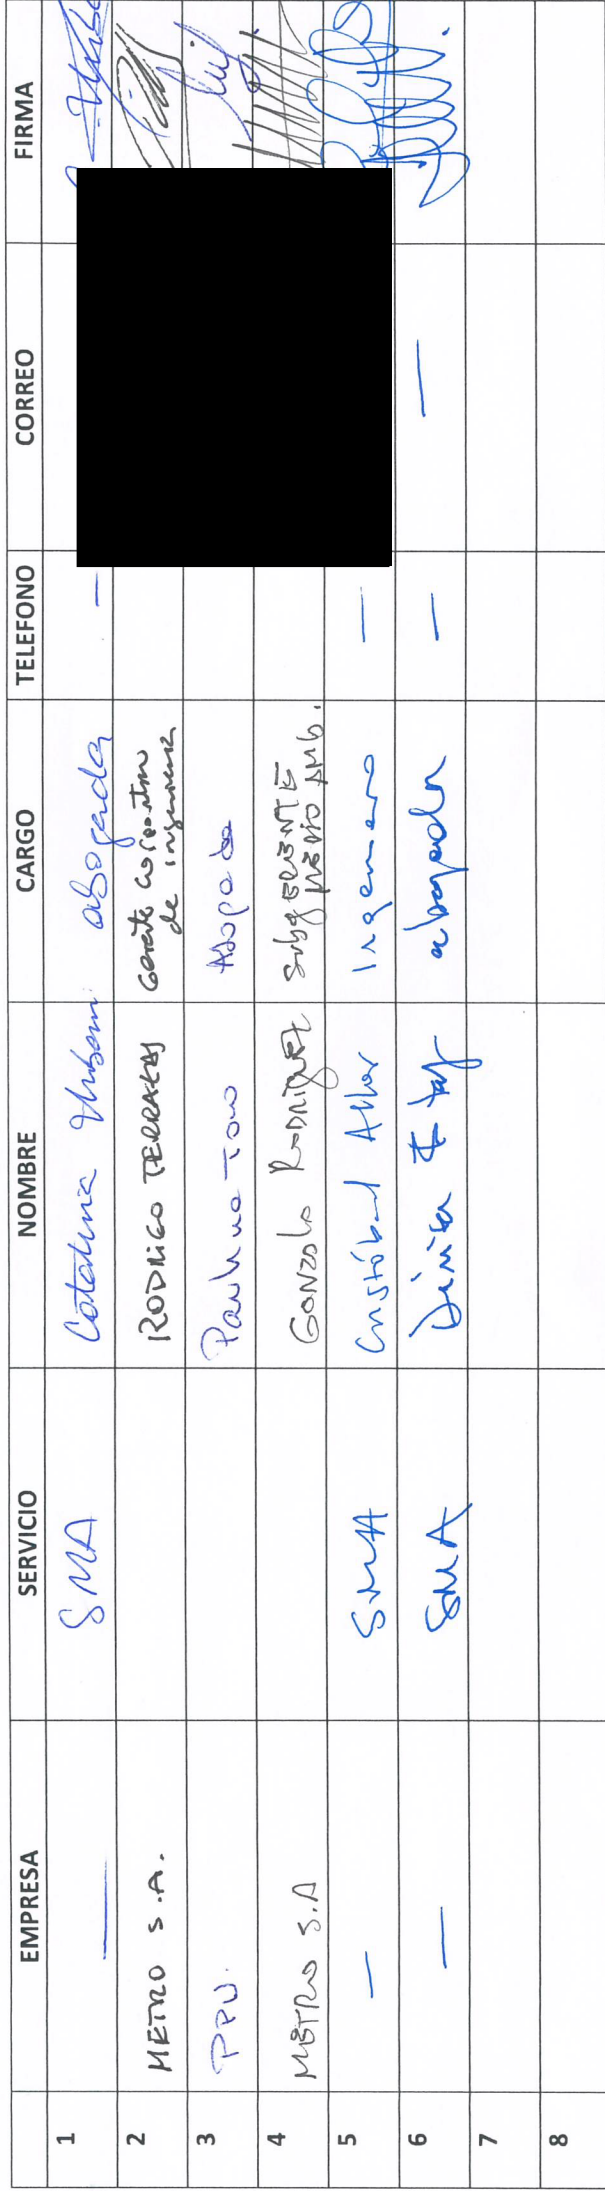 EMPRESA SERVICIO NOMBRE CARGO TELEFONO CORREO FIRMA
1 — SMA Catalina abogada —
2 METRO S.A. RODRIGO TERRAZAS Gerente Corporativo
de ingeniería
3 PPU. Paulina Toro Abogada
4 METRO S.A GONZALO RODRIGUEZ SUBGERENTE
MEDIO AMB.
5 — SMA Cristóbal Ingeniero —
6 — SMA abogada — —
7
8